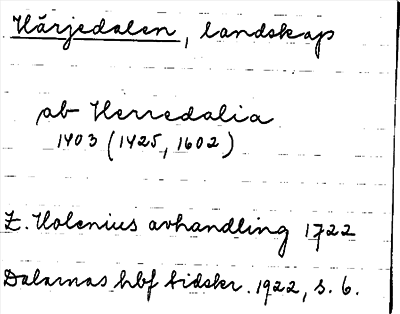 Härjedalen, landskap
ab Herredalia
1403 (1425, 1602)
Z. Holenius avhandling 1722
Dalarnas hbf tidskr. 1922, s. 6.